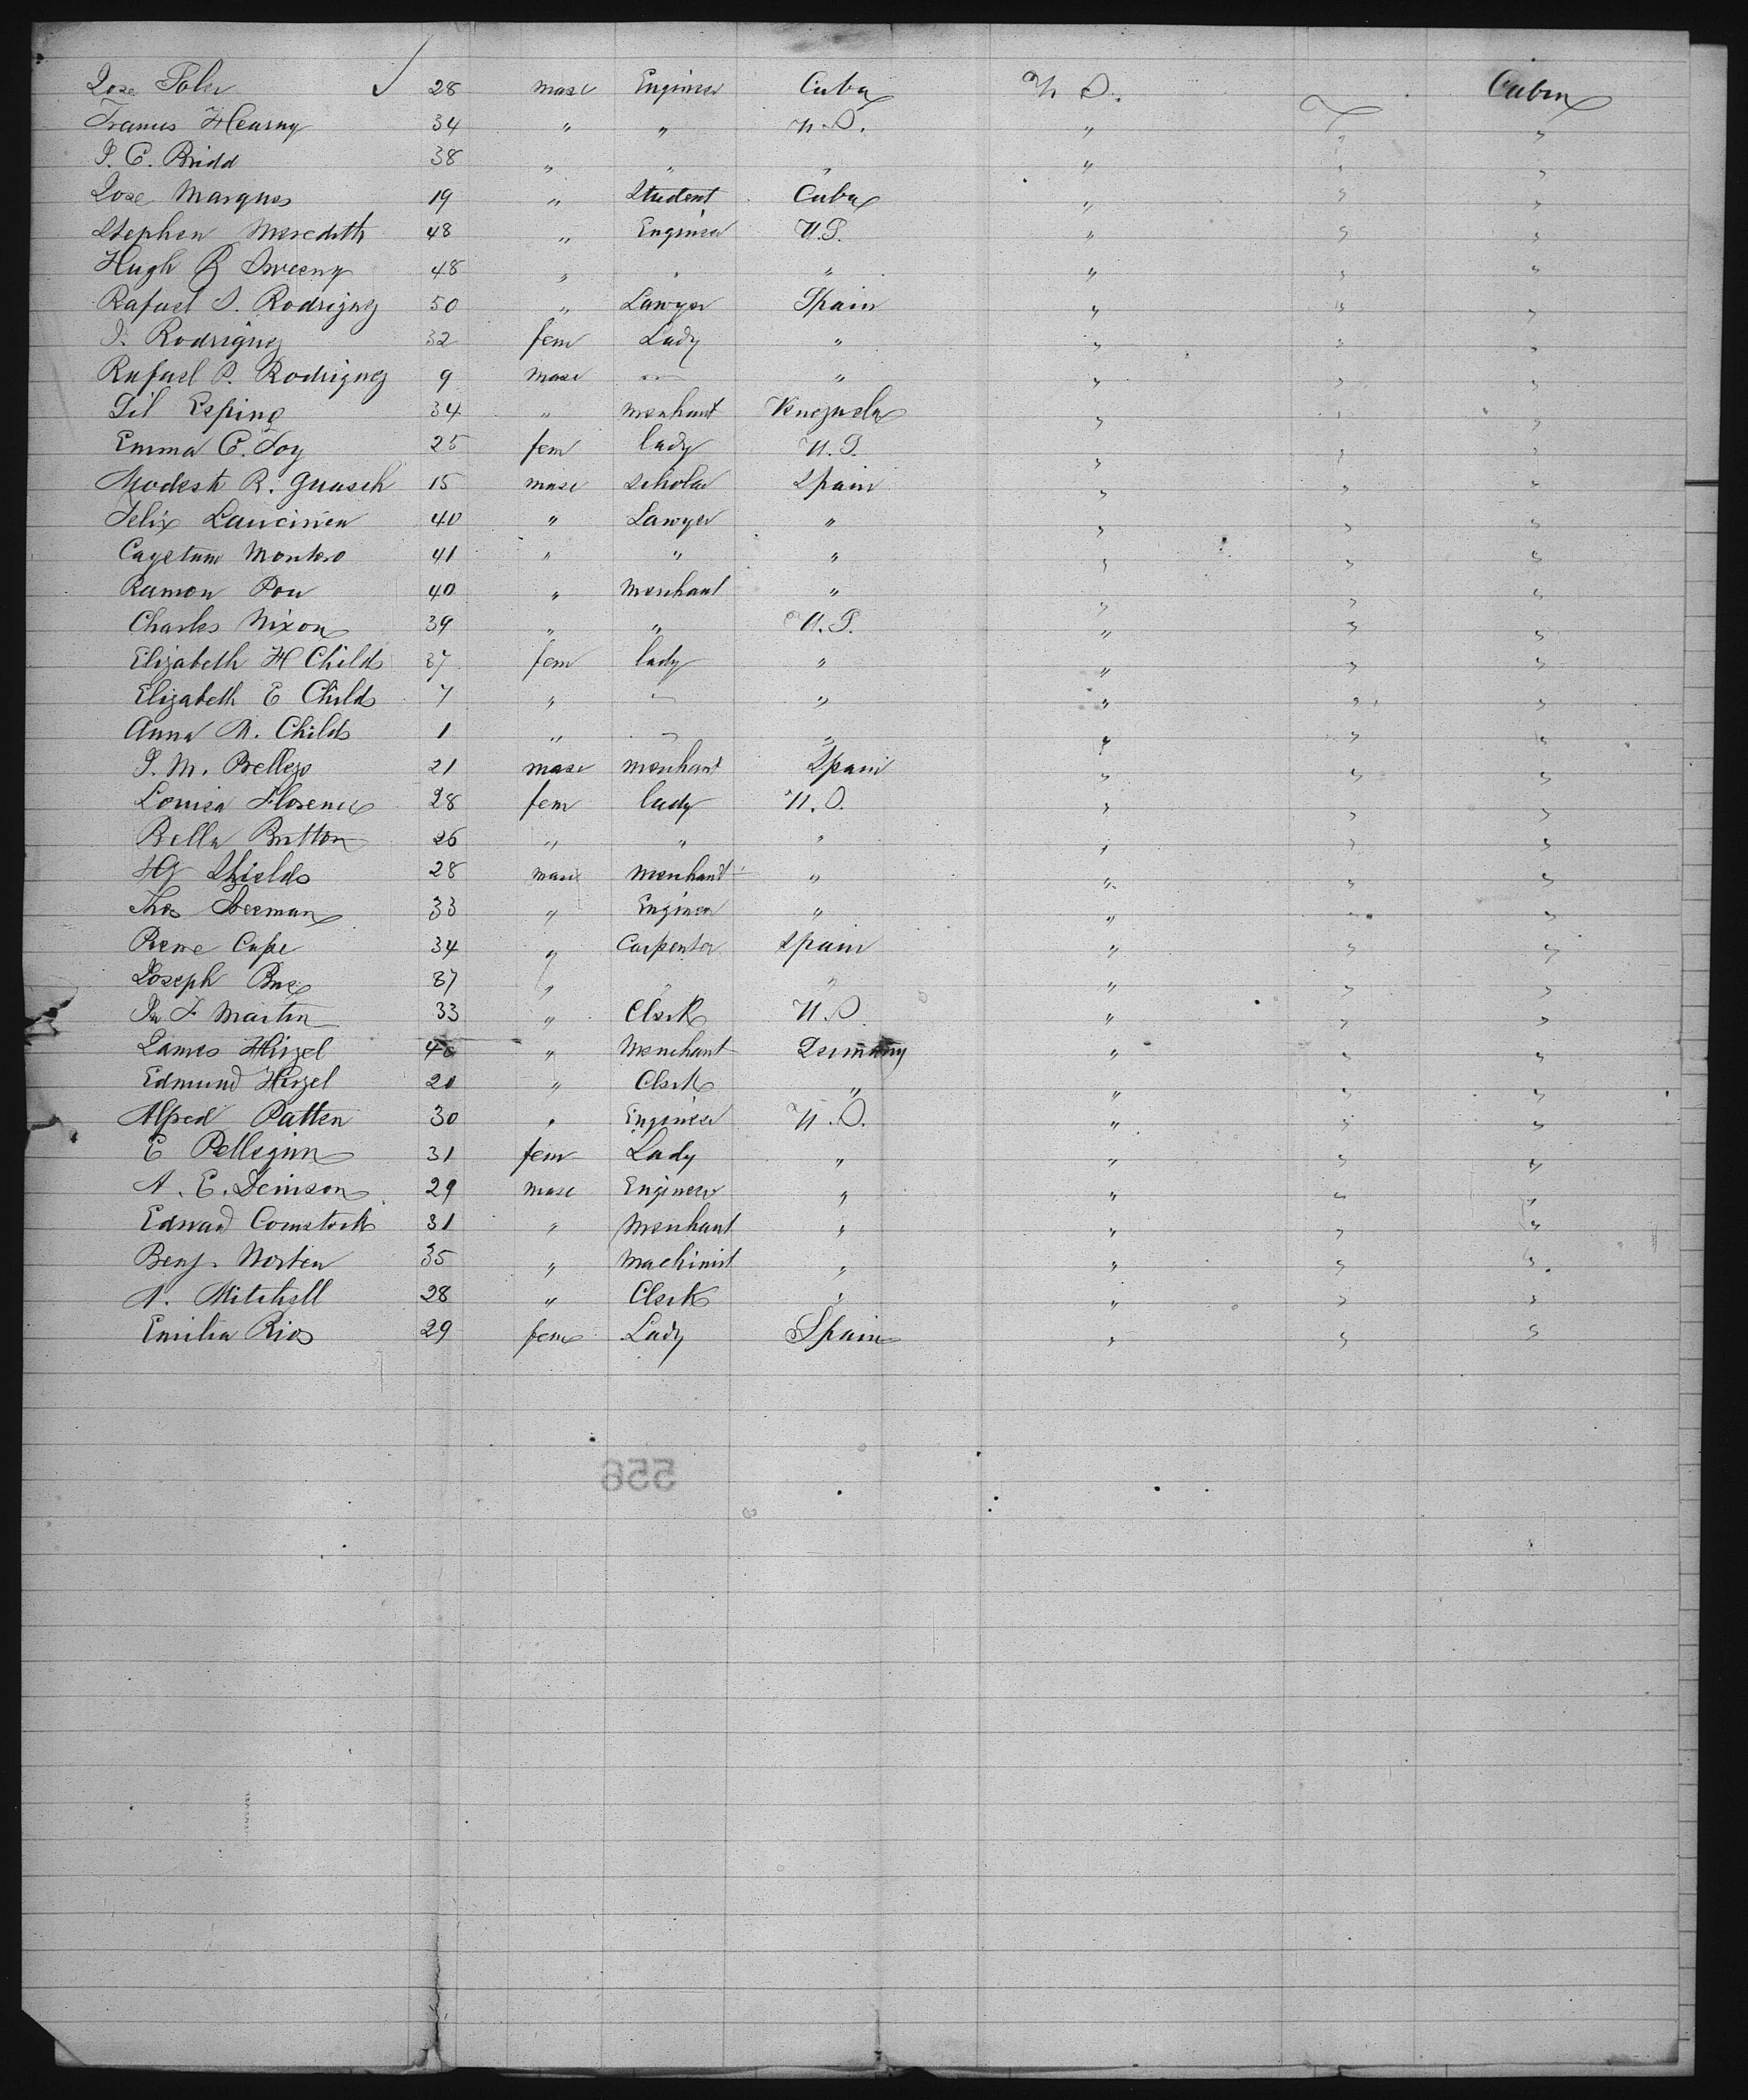 Jose Soler ✓ 28 masc Engineer Cuba U S. Cabin
Francis Hearny 34 " " U.S. " " "
J. C. Bridd 38 " " " " " "
Jose Marques 19 " Student Cuba " " "
Stephen Meredith 48 " Engineer U.S. " " "
Hugh B Sweeny 48 " " " " " "
Rafael S. Rodriguez 50 " Lawyer Spain " " "
J. Rodriguez 32 fem Lady " " " "
Rafael P. Rodriguez 9 masc — " " " "
Gil Espino 34 " merchant Venezuela " " "
Emma C. Foy 25 fem lady U.S. " " "
Modest R. Guasch 15 masc scholar Spain " " "
Felix 40 " Lawyer " " " "
Cayetano Montero 41 " " " " " "
Ramon Pou 40 " Merchant " " " "
Charles Nixon 39 " " U.S. " " "
Elizabeth H Childs 37 fem lady " " " "
Elizabeth E Childs 7 " — " " " "
Anna M. Childs 1 " — " " " "
J. M. Bellejo 21 masc merchant Spain " " "
Louisa Florence 28 fem lady U.S. " " "
Bella Britton 26 " " " " " "
Shields 28 masc merchant " " " "
Thos Seeman 33 " Engineer " " " "
34 " Carpenter Spain " " "
Joseph 37 " " " " " "
F Martin 33 " Clerk U.S " " "
James Hirzel 40 " Merchant Germany " " "
Edmund Hirzel 20 " Clerk " " " "
Alfred Patten 30 " Engineer U.S. " " "
E Pellegrin 31 fem Lady " " " "
A. E. Denison 29 masc Engineer " " " "
Edward Comstock 31 " Merchant " " " "
Benj. Norten 35 " Machinist " " " "
A. Mitchell 28 " Clerk " " " "
Emilia Rios 29 fem Lady Spain " " "
556